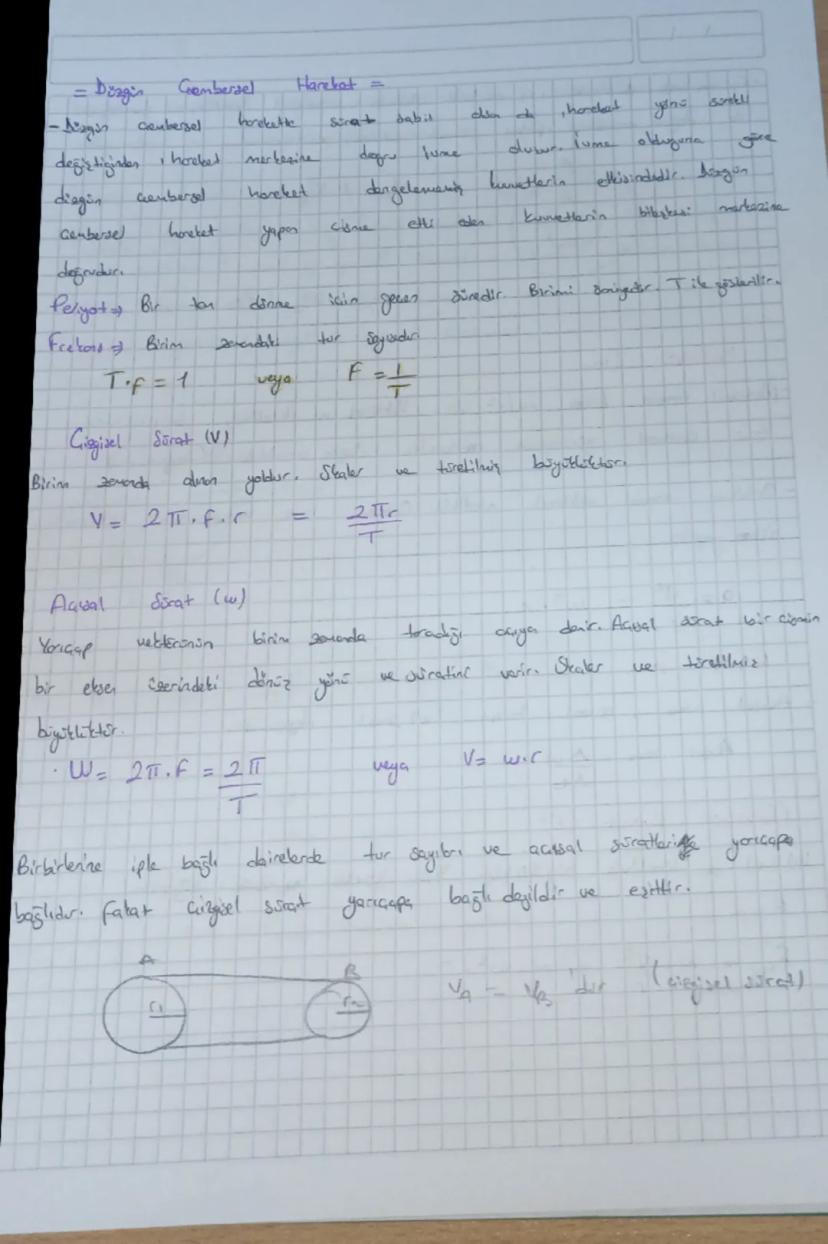 = Düzgün Çembersel Hareket =
- Düzgün çembersel harekette sürat sabit olsa da, hareket yönü sürekli
değiştiğinden, hareket merkezine doğru ivme oluşur. İvme olduğuna göre
düzgün çembersel hareket dengelenmemiş kuvvetlerin etkisindedir. Düzgün
çembersel hareket yapan cisme etki eden kuvvetlerin bileşkesi merkezine
doğrudur.
Periyot => Bir tam dönme için geçen süredir. Birimi saniyedir. T ile gösterilir.
Frekans => Birim zamandaki tur sayısıdır
T.f = 1 veya F = 1/T
Çizgisel Sürat (V)
Birim zamanda alınan yoldur. Skaler ve türetilmiş büyüklüktür.
V = 2π.f.r = 2πr/T
Açısal Sürat (w)
Yarıçap vektörünün birim zamanda taradığı açıya denir. Açısal sürat bir cismin
bir eksen üzerindeki dönüş yönü ve süratini verir. Skaler ve türetilmiş
büyüklüktür.
. W = 2π.F = 2π/T veya V = w.r
Birbirlerine iple bağlı dairelerde tur sayıları ve açısal süratleri yarıçapa
bağlıdır. Fakat çizgisel sürat yarıçapa bağlı değildir ve eşittir.
A B
r₁ r₂ VA = VB 'dir (çizgisel sürat)